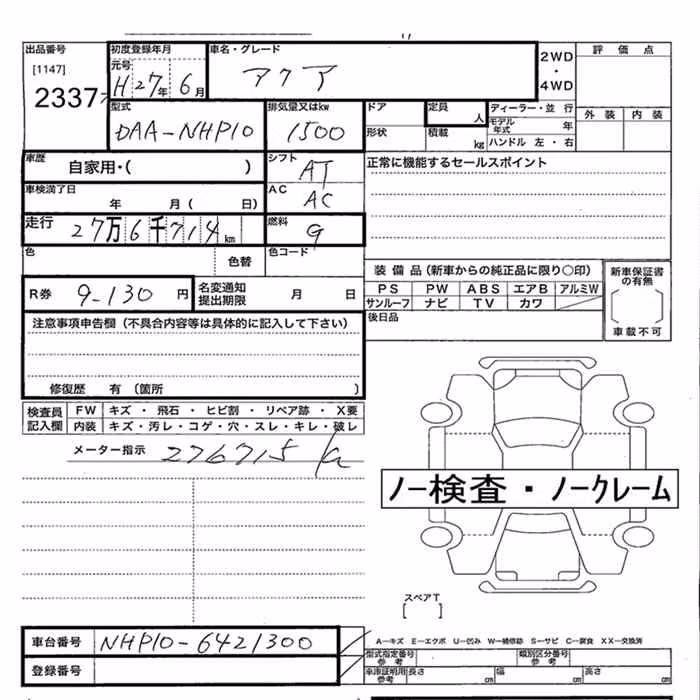 出品番号
[1147]
2337
初度登録年月
元号
H27年6月
車名・グレード
アクア
2WD
・
4WD
評価点
外装 内装
型式
DAA-NHP10
排気量又はkw
1500
ドア
形状
定員
人
積載
kg
ディーラー・並行
モデル年式 年
ハンドル 左・右
車歴
自家用・( )
シフト
AT
正常に機能するセールスポイント
車検満了日
年 月( 日)
AC
AC
走行
27万6千714km
燃料
G
色
色替
色コード
R券 9-130 円
名変通知
提出期限
月 日
装備品(新車からの純正品に限り○印)
PS PW ABS エアB アルミW
サンルーフ ナビ TV カワ
新車保証書
の有無
[ ]
車載不可
後日品
注意事項申告欄(不具合内容等は具体的に記入して下さい)
修復歴 有(箇所 )
検査員
記入欄
FW キズ・飛石・ヒビ割・リペア跡・X要
内装 キズ・汚レ・コゲ・穴・スレ・キレ・破レ
メーター指示 276715
ノー検査・ノークレーム
スペアT
[ ]
車台番号 NHP10-6421300
登録番号
A-キズ E-エクボ U-凹み W-補修跡 S-サビ C-腐食 XX-交換済
型式指定番号
参考
類別区分番号
参考
車庫証明用
参考
長さ cm 幅 cm 高さ cm